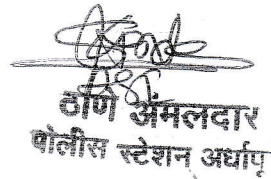 ठाणे अमलदार
पोलीस स्टेशन अर्धापू